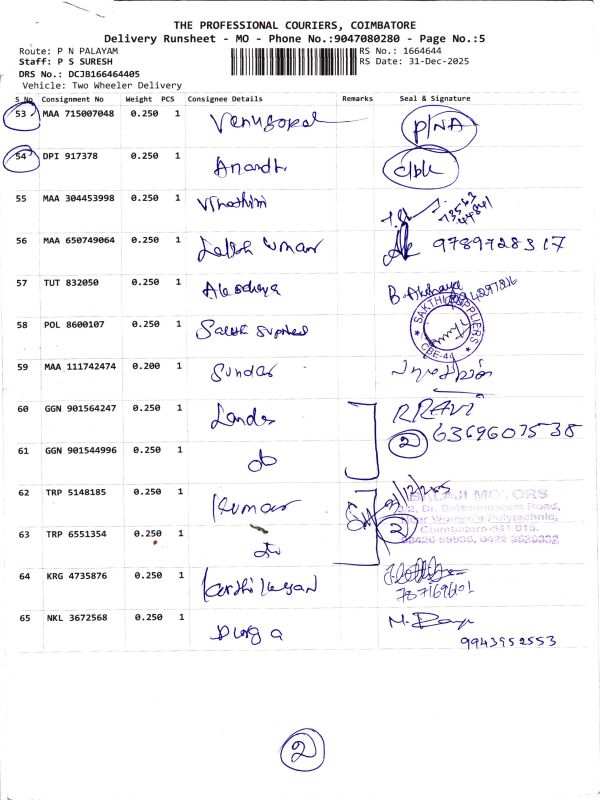 THE PROFESSIONAL COURIERS, COIMBATORE
Delivery Runsheet - MO - Phone No.:9047080280 - Page No.:5
Route: P N PALAYAM RS No.: 1664644
Staff: P S SURESH RS Date: 31-Dec-2025
DRS No.: DCJB166464405
Vehicle: Two Wheeler Delivery
S No Consignment No Weight PCS Consignee Details Remarks Seal & Signature
53 MAA 715007048 0.250 1 Venugopal P/NA
54 DPI 917378 0.250 1 Anandh
55 MAA 304453998 0.250 1
73563
44841
56 MAA 650749064 0.250 1 Kumar 9789728317
57 TUT 832050 0.250 1 B. Akshaya
58 POL 8600107 0.250 1 SAKTHI SUPPLIERS CBE-44
59 MAA 111742474 0.200 1 Sundar
60 GGN 901564247 0.250 1 R RAVI
2 6369607538
61 GGN 901544996 0.250 1 do
62 TRP 5148185 0.250 1 Kumar BALAJI MOTORS
2
63 TRP 6551354 0.250 1 do Coimbatore-641 018.
64 KRG 4735876 0.250 1 Karthikeyan
65 NKL 3672568 0.250 1 Durga M. Durga
9943952553
2